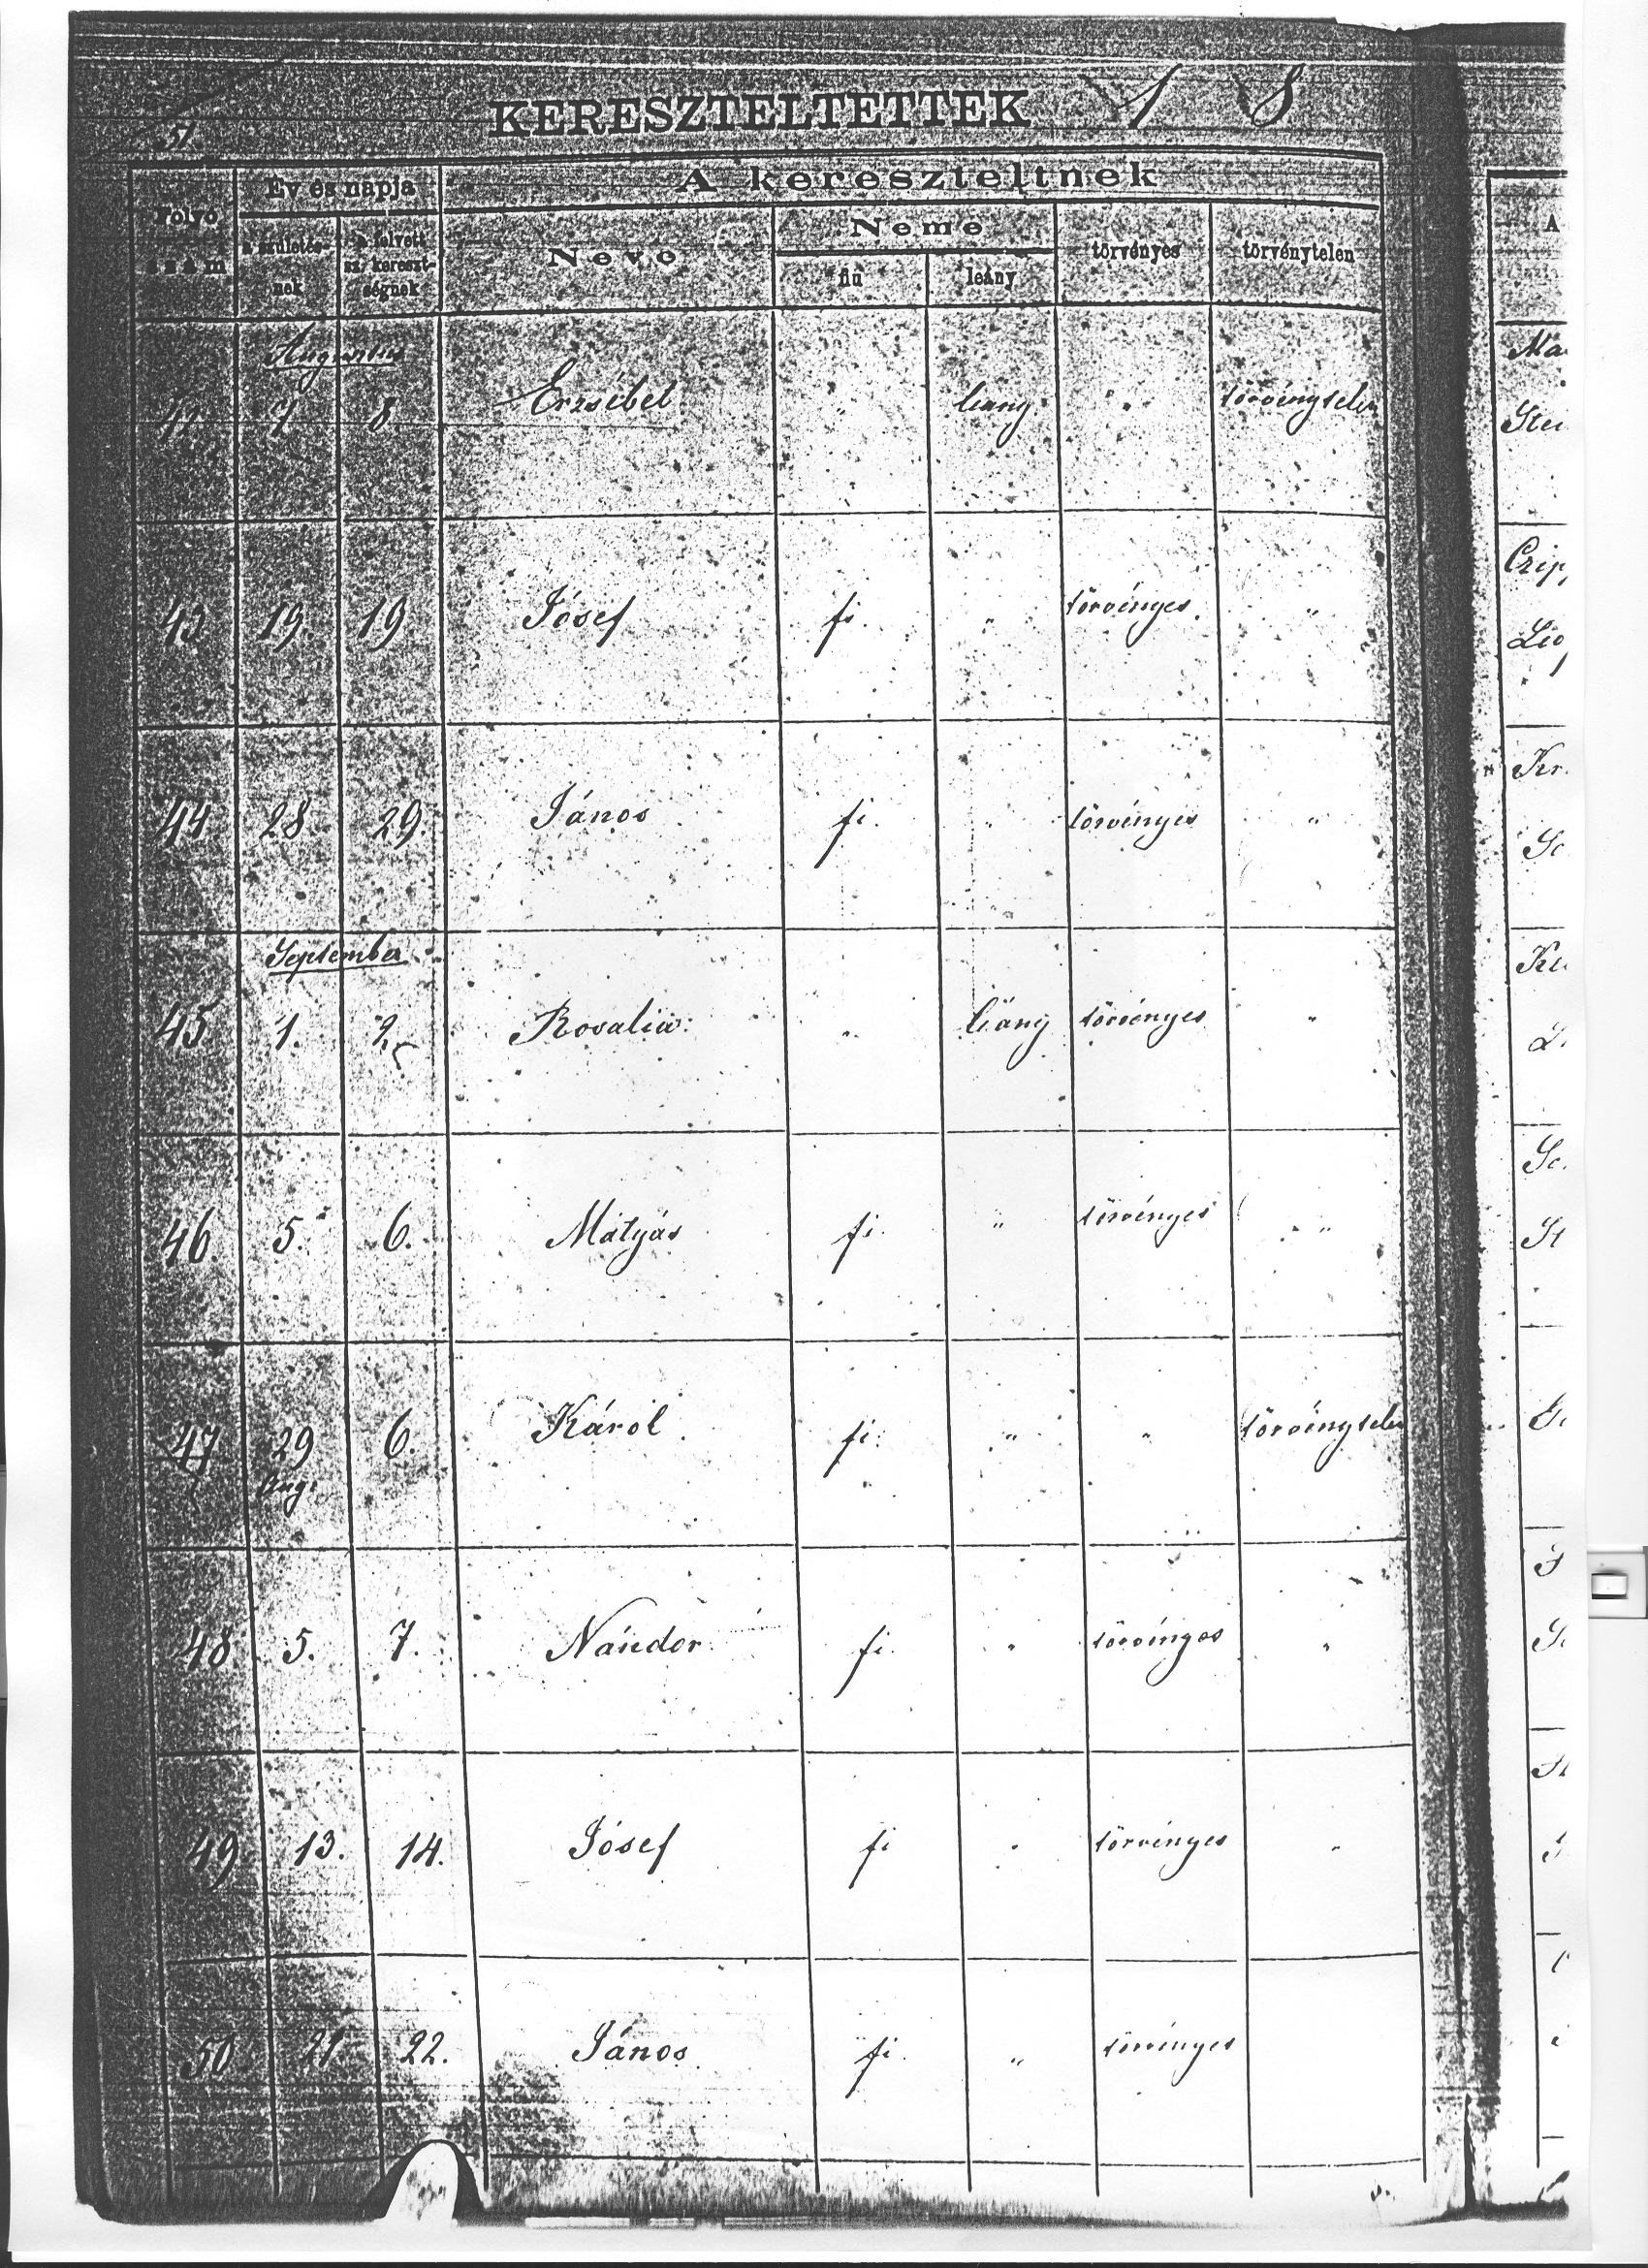 KERESZTELTETTEK 1 8
51.
Folyó szám
Év és napja
a születés-nek
a felvett sz. kereszt-ségnek
A kereszteltnek
Neve
Neme
fiú
leány
törvényes
törvénytelen
A
Augusztus
42 7 8 Erzsébet " leány " törvénytelen
43 19. 19 Jósef fi. " törvényes "
44 28 29. János fi. " törvényes "
September
45 1. 2. Rosalia " leány törvényes "
46. 5. 6. Mátyás fi. " törvényes "
47 29 Aug. 6. Károl fi. " " törvénytelen
48. 5. 7. Nándor fi. " törvényes "
49 13. 14. Jósef fi " törvényes "
50 21 22. János fi. " törvényes